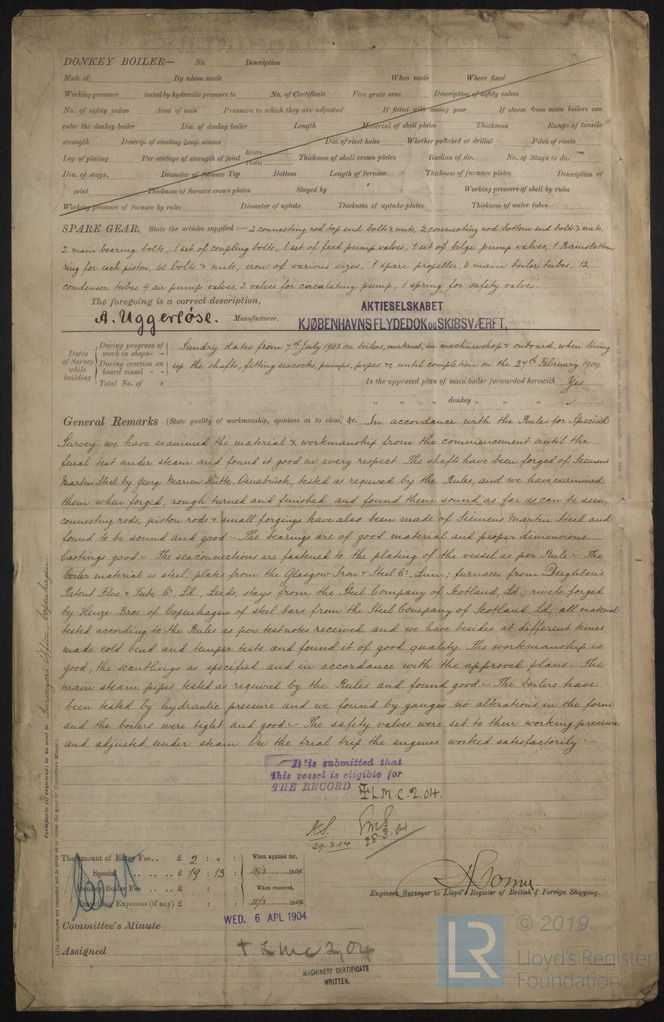 DONKEY BOILER— No. Description
Made at By whom made When made Where fixed
Working pressure tested by hydraulic pressure to No. of Certificate Fire grate area Description of safety valves
No. of safety valves Area of each Pressure to which they are adjusted If fitted with easing gear If steam from main boilers can
enter the donkey boiler Dia. of donkey boiler Length Material of shell plates Thickness Range of tensile
strength Descrip. of riveting long. seams Dia. of rivet holes Whether punched or drilled Pitch of rivets
Lap of plating Per centage of strength of joint Rivets Plates Thickness of shell crown plates Radius of do. No. of Stays to do.
Dia. of stays. Diameter of furnace Top Bottom Length of furnace Thickness of furnace plates Description of
joint Thickness of furnace crown plates Stayed by Working pressure of shell by rules
Working pressure of furnace by rules Diameter of uptake Thickness of uptake plates Thickness of water tubes
SPARE GEAR. State the articles supplied:— 2 connecting rod top end bolts & nuts, 2 connecting rod bottom end bolts & nuts,
2 main bearing bolts, 1 set of coupling bolts, 1 set of feed pump valves, 1 set of bilge pump valves, 1 Ramsbottom
ring for each piston, 60 bolts & nuts, iron of various sizes, 1 spare propeller, 6 main boiler tubes, 12
condenser tubes, 4 air pump valves, 2 valves for circulating pump, 1 spring for safety valves.
The foregoing is a correct description,
A. Uggerløse. Manufacturer. AKTIESELSKABET
KJØBENHAVNS FLYDEDOK OG SKIBSVÆRFT.
Dates of Survey while building
During progress of work in shops - -
During erection on board vessel - -
Total No. of
Sundry dates from 7th July 1903 on boilers, material, in machineshop & onboard, when lining
up the shafts, fitting seacocks, pumps, pipes & until completion on the 24th February 1904.
Is the approved plan of main boiler forwarded herewith Yes
" " " donkey " " "
General Remarks (State quality of workmanship, opinions as to class, &c. In accordance with the Rules for Special
Survey we have examined the material & workmanship from the commencement until the
final test under steam and found it good in every respect. The shafts have been forged of Siemens
Martin Steel by Georgs Marien Hütte, Osnabrück, tested as required by the Rules, and we have examined
them when forged, rough turned and finished and found them sound as far as can be seen,
connecting rods, piston rods & small forgings have also been made of Siemens Martin Steel and
found to be sound and good — The bearings are of good material and proper dimensions
Castings good — The seaconnections are fastened to the plating of the vessel as per Rule — The
boiler material is steel, plates from the Glasgow Iron & Steel Co. Lim., furnaces from Deighton's
Patent Flue & Tube Co. Ld., Leeds, stays from the Steel Company of Scotland, Ld., rivets forged
by Henze Bros. of Copenhagen of steel bars from the Steel Company of Scotland, Ld, all material
tested according to the Rules as per testnotes received and we have besides at different times
made cold bend and temper tests and found it of good quality. The workmanship is
good, the scantlings as specified and in accordance with the approved plans. The
main steam pipes tested as required by the Rules and found good — The boilers have
been tested by hydraulic pressure and we found by gauges no alterations in the form
and the boilers were tight and good — The safety valves were set to their working pressure
and adjusted under steam. On the trial trip the engines worked satisfactorily —
It is submitted that
this vessel is eligible for
THE RECORD ✠ L M C. 2. 04.
29.3.04 28.3.04
The amount of Entry Fee.. £ 2 : - : When applied for,
Special £ 19 : 13 : 14/3 1904
Donkey Boiler Fee £ : : When received,
Travelling Expenses (if any) £ : : 15/3 1904
Engineer Surveyor to Lloyd's Register of British & Foreign Shipping.
Committee's Minute WED. 6 APL 1904
Assigned + L M C 2,04
MACHINERY CERTIFICATE
WRITTEN.
© 2019
LR Lloyd's Register
Foundation